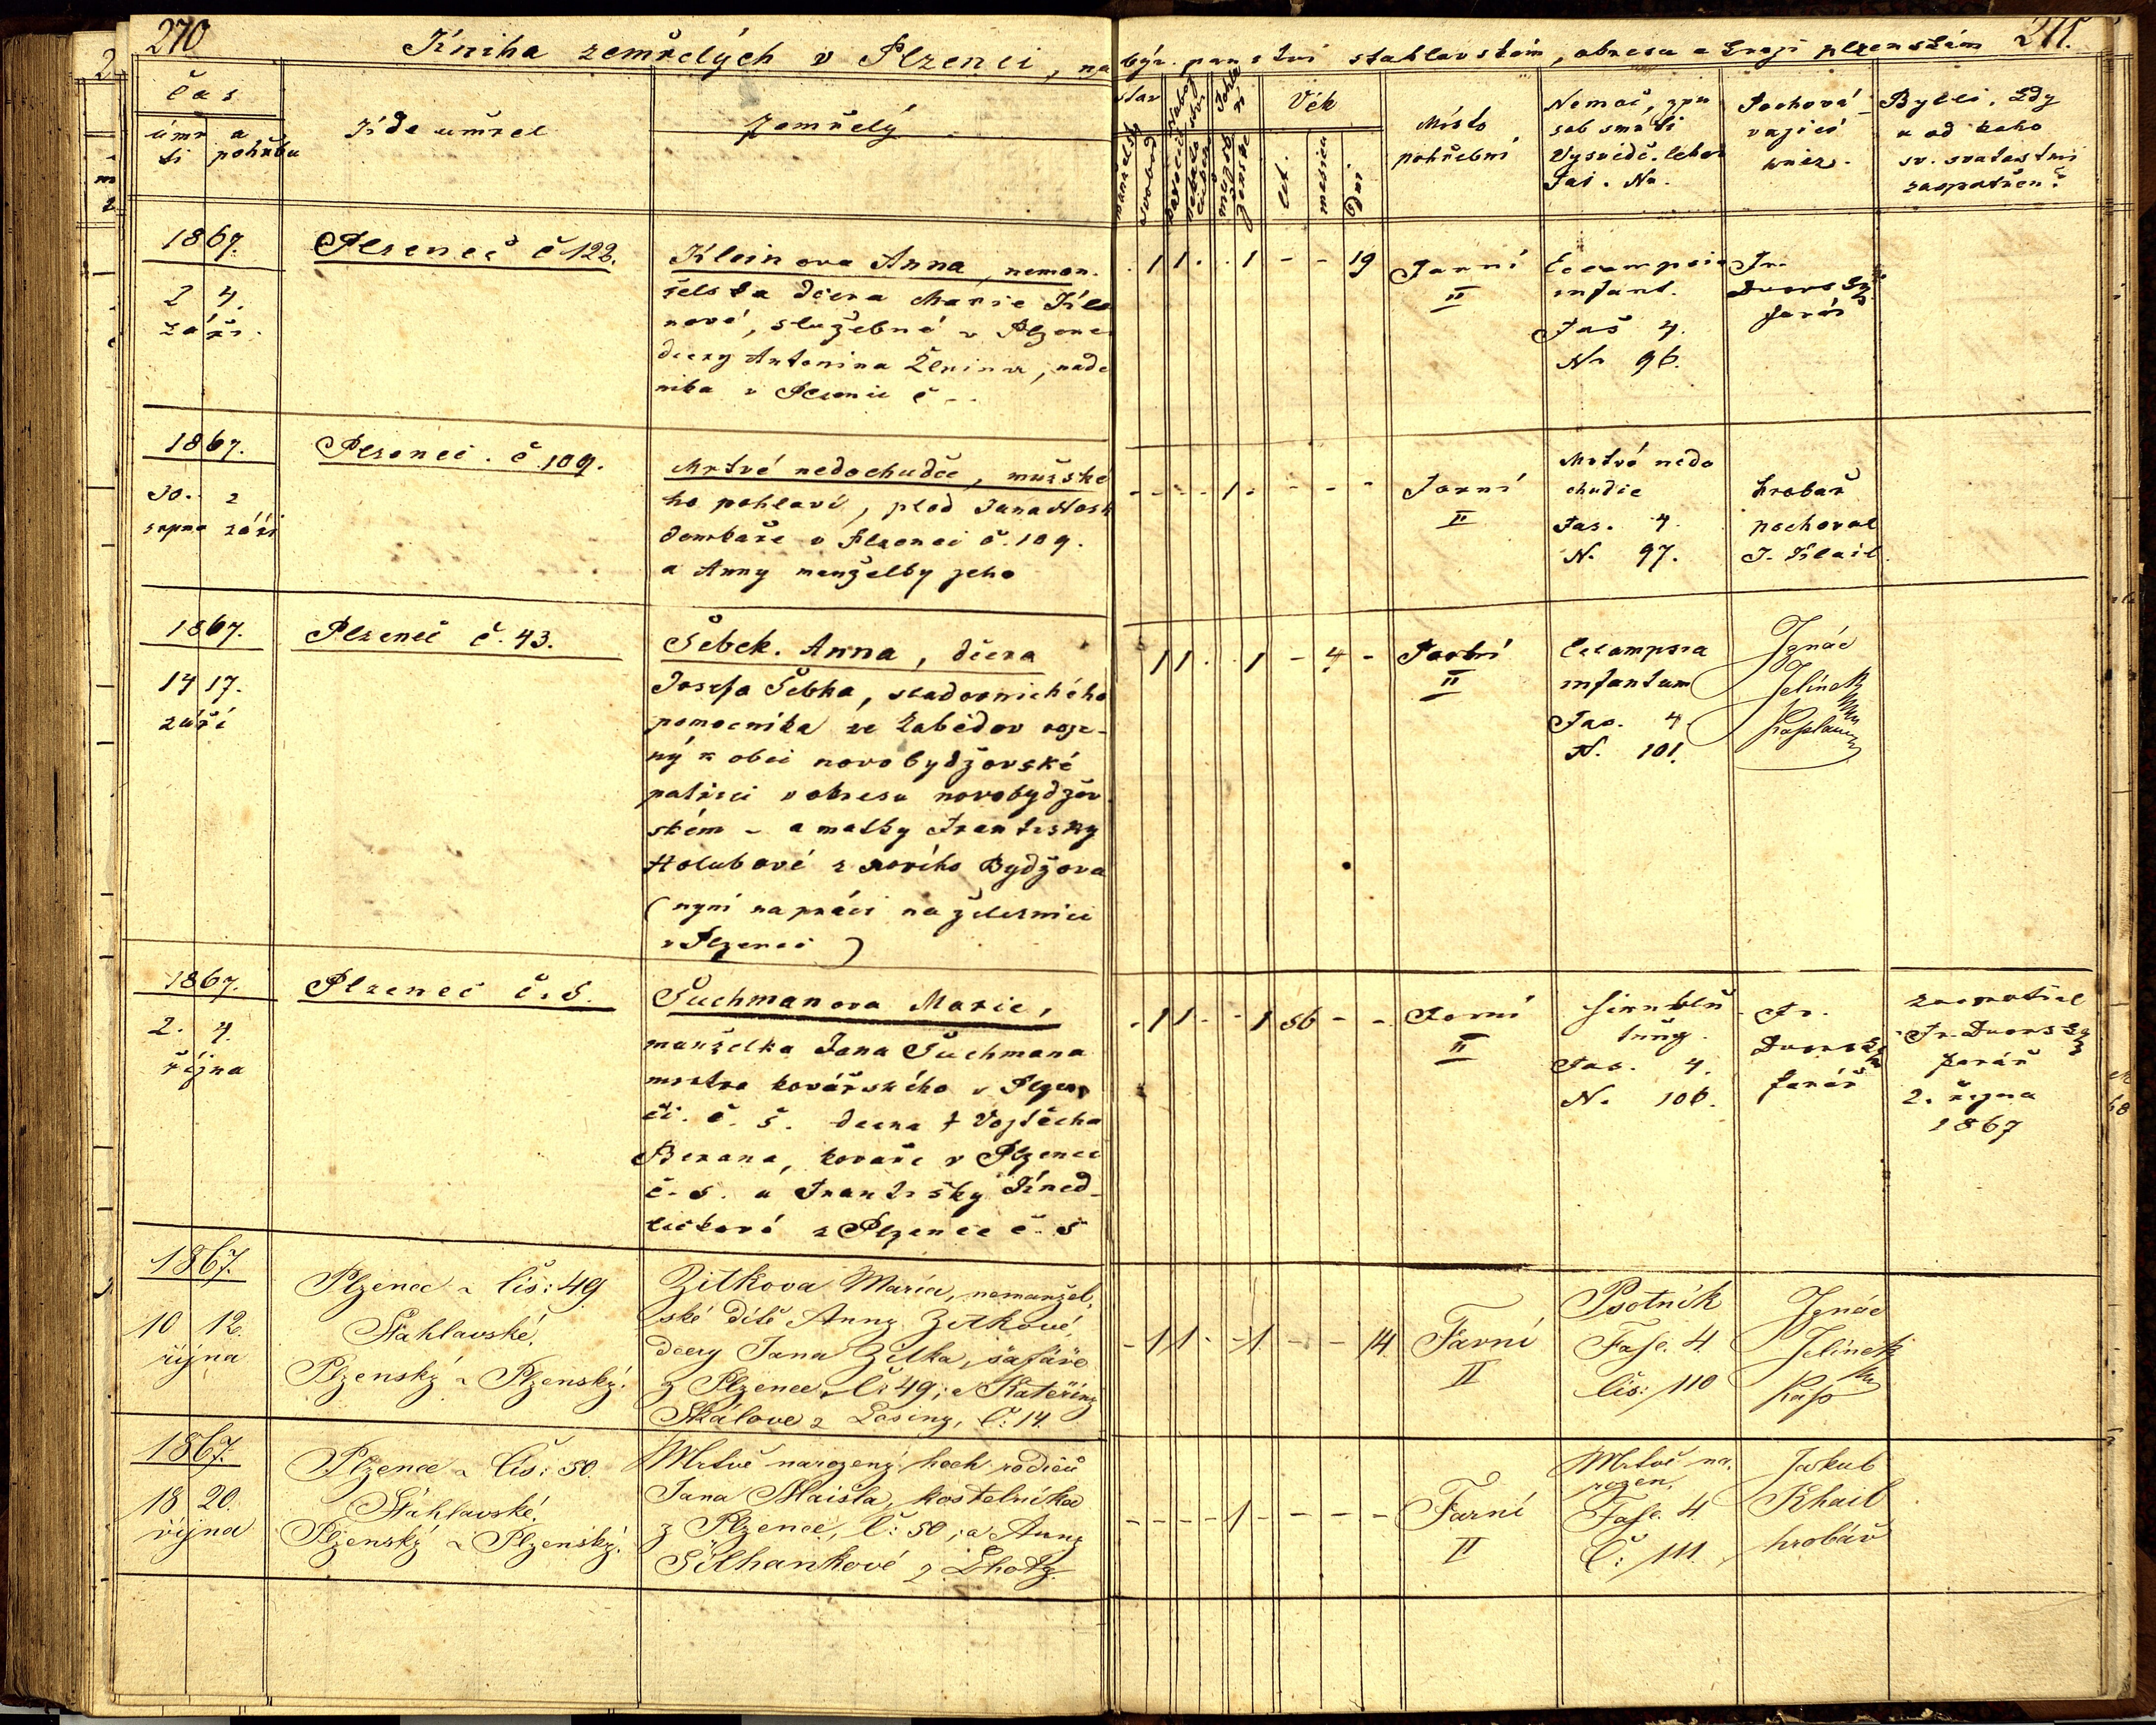 270
Kniha zemřelých v Plzenci, na býv. panství stahlavském, okresu a kraji plzenském 271.
čas
úmr ti
a pohřbu
Kde umřel
Zemřelý
stav
manželský
svobod
Pohla ví
mužské
ženské
Věk
let.
měsíců
dní
Místo
pohřební
Nemoc, způ
sob smrti
Vysvědč. lékař
Fas. No.
Pochová
vající
kněz.
Byl-li, kdy
a od koho
sv. svatostmi
zaopatřen?
1867.
2 4.
září.
Plzeneč č 122.
Kleinova Anna, neman.
želska dcera Marie Klei
nové, služebné v Plzenc
dcery Antonina
v Plzenci č --
. 1 1 . . 1 - - 19
Farní
II
Eccampsie
infant.
Fas 4.
No 96.
Fr.
Dvorský
farář
1867.
30. 2
srpna září
Plzenci. č. 109.
Mrtvé nedochudče, mužské
ho pohlaví, plod Jana
domkáře v Plzenci č. 109.
a Anny manželky jeho
- - - - 1 - - - -
Farní
II
Mrtvé nedo
chudče
Fas. 4.
N. 97.
hrobař
pochoval
J. Klail.
1867.
14 17.
září
Plzeneč č. 43.
Šebek. Anna, dcera
Josefa Šebka, stadovnichého
pomocníka ze
ný k obci novobydžovské
patřící v okresu novobydžov
ském - a matky Františky
Holubové z nového Bydžova
(nyní na práci na železnici
v Plzenci)
1 1 . . 1 - 4 -
II
Eccampsia
infantum
Fas. 4.
N. 101.
Ignác
Jelínek
Kaplan
1867.
2. 4.
října
Plzeneč č. 5.
Šuchmanova Marie,
manželka Jana Šuchmana
mistra kovářského v Plzen
či. č. 5. dcera † Vojtěcha
Berana, kováře v Plzenci
č. 5. a Františky Kned
ličkové z Plzence č. 5
- 1 1 - - 1 56 - -
Farní
II
Fas. 4.
N. 106.
Fr.
Dvorský
farář
zaopatřil
Fr. Dvorský
farář
2. října
1867
1867.
10 12.
října
Plzenec čís: 49
Štáhlavské,
Plzenský a Plzenský.
Zitkova Marie, nemanžel,
ské dítě Anny Zitkové,
dcery Jana Zitka, šafáře
z Plzence, č: 49; a Kateřiny
Skálove z Losiny, č: 14.
- 1 1 - - 1 - - 14.
Farní
II
Psotník
Fasc. 4
čís: 110
Ignác
Jelínek
kap
1867.
18 20.
října
Plzenec čís: 50.
Štáhlavské,
Plzenský a Plzenský.
Mrtvě narozený hoch rodičů
Jana Maisla, kostelníka
z Plzence, č: 50; a Anny
Šilhankové z Lhoty.
- - - - 1 - - - -
Farní
II
Mrtvě na,
rozen,
Fasc. 4
č: 111.
Jakub
Khail
hrobář